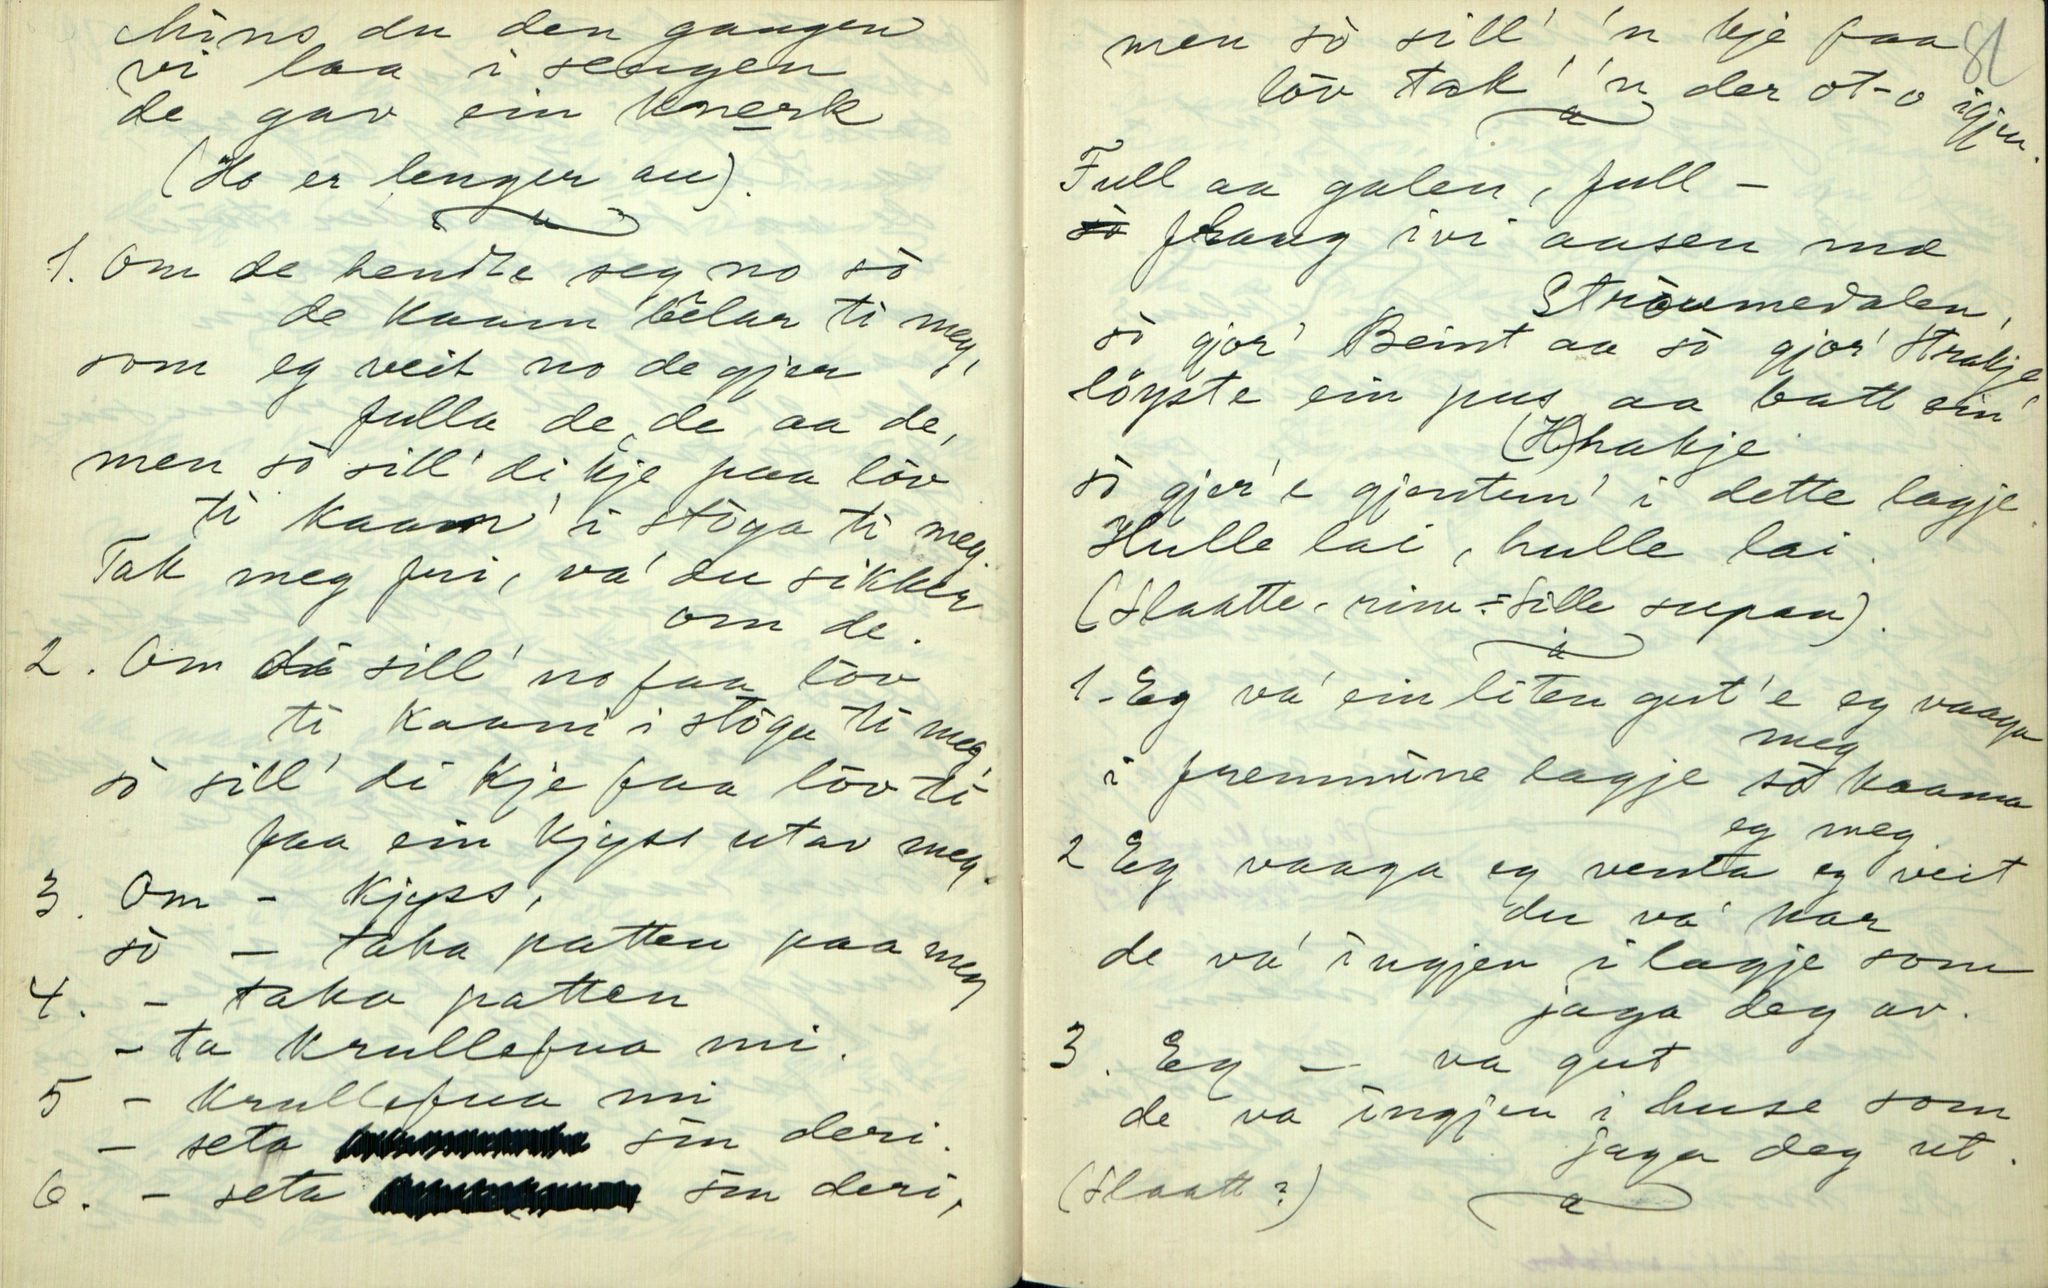 Mins du den gangen
vi laa i sengen
de gav ein knerk
(Ho er lenger au).
1. Om de hendte seg no sò
de kaam bêlar ti meg,
som eg veit no de gjer
fulla de, de aa de,
men sò sill' di kje faa lòv
ti kaam' i stòga ti meg.
Tak meg fri, va' du sikker
om de.
2. Om di sill' no faa lòv
ti kaam' i stògu ti meg,
sò sill' di kje faa lòv ti
faa ein kjyss utav meg.
3. Om - kjyss,
sò — taka patten paa meg
4. - taka patten
- ta krullefua mi.
5 - krullefua mi
- seta sin deri.
6. - seta sin deri,
81
men sò sill' 'n kje faa
lòv tak' 'n der ot-o igjen.
Full aa galen, full —
sò fhaug ivi aasen mæ
Stròumedalen,
sò gjor' Beint aa sò gjor' Strakje
lòyste ein pus aa batt sin'
(H)hakje
sò gjer'e gjentun' i dette lagje.
Hulle lai, hulle lai.
(Slaatte-rim = Sille supan).
1. Eg va' ein liten gut'e eg vaaga
meg
i fremmine lagje sò kaama
eg meg
2 Eg vaaga eg venta eg veit
du va' kar
de va' ingjen i lagje som
jaga deg av.
3. Eg — va gut
de va ingjen i huse som
jaga deg ut.
(Slaatt?)